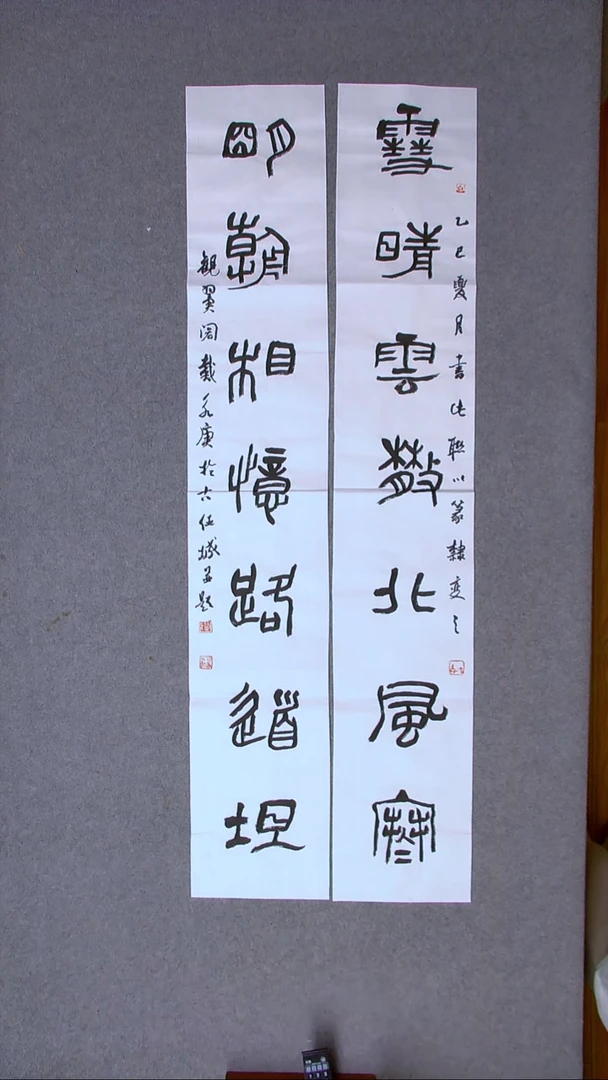 乙巳夏月書此聯以篆隸變之
雪晴雲散北風寒
明朝相憶路道坦
觀翼阁戴永庚於古任城孟題